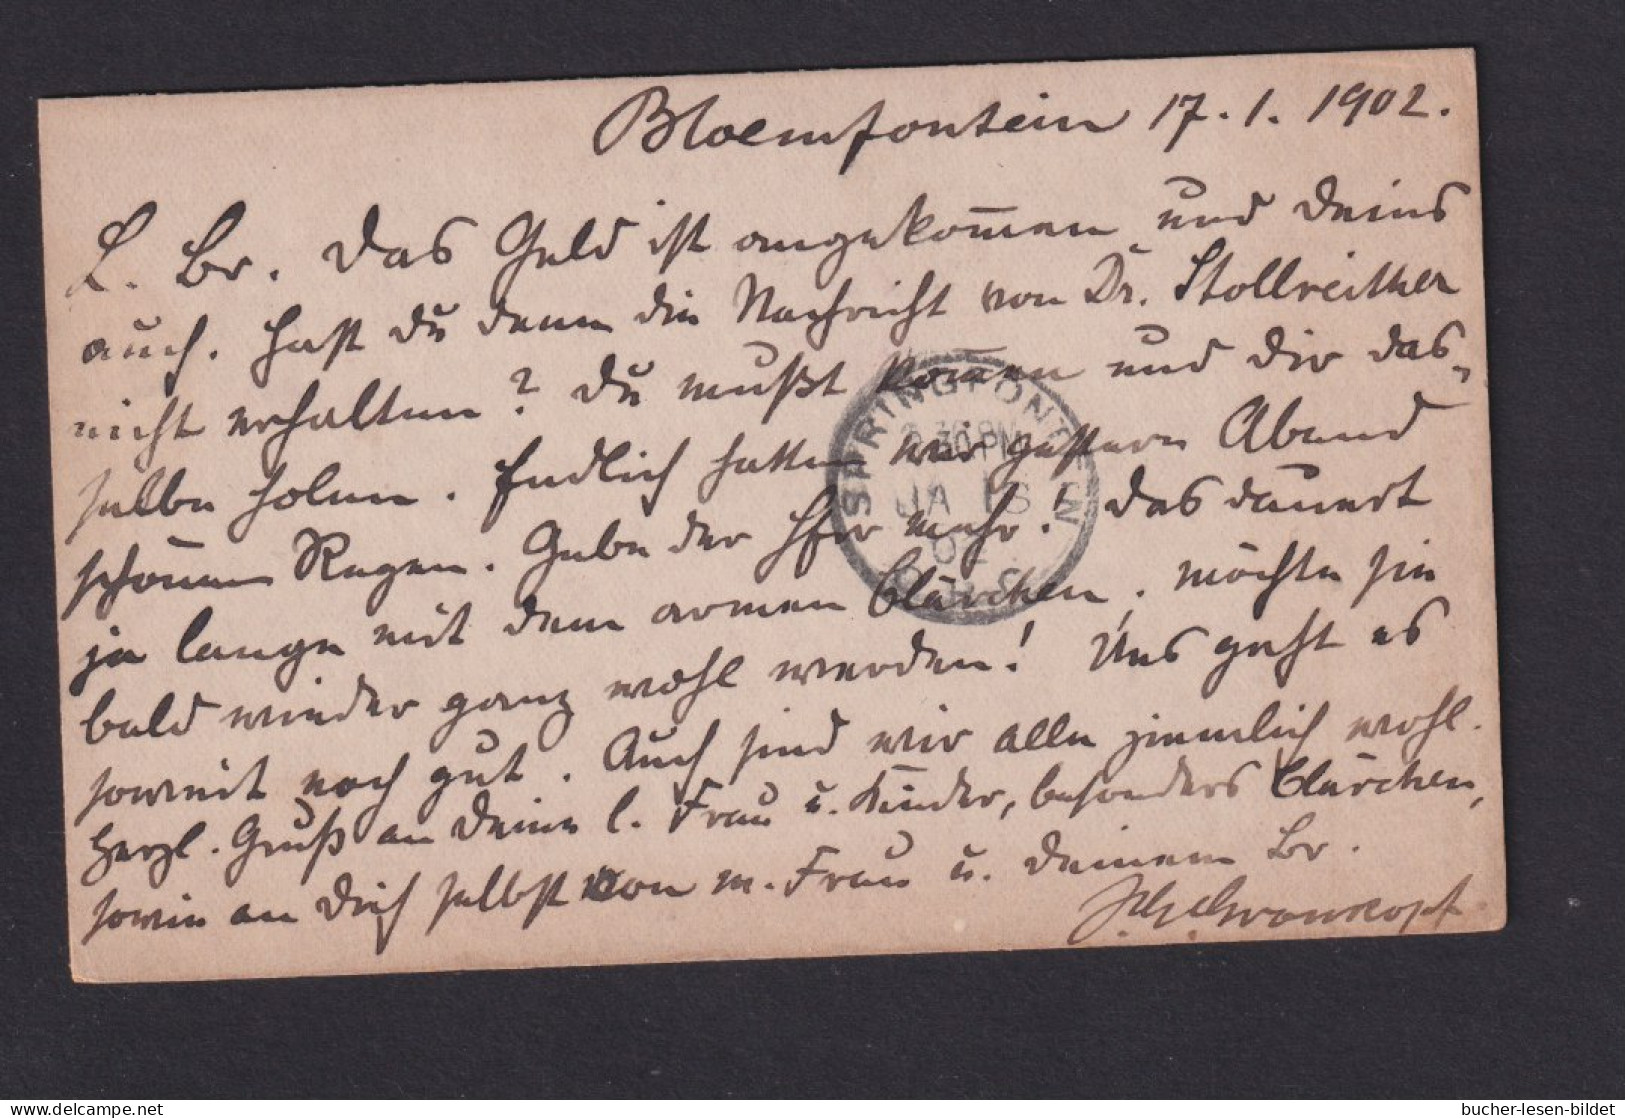 Bloemfontein 17.1.1902.
L. Br. Das Geld ist angekom̄en und Deins
auch. Hast du denn die Nachricht von Dr. Stollreither
nicht erhalten? Du mußt kom̄en und dir das-
selbe holen. Endlich hatten wir gestern Abend
schönen Regen. Gebe der Herr mehr! Das dauert
ja lange mit dem armen Clärchen. Möchte sie
bald wieder ganz wohl werden! Uns geht es
soweit noch gut. Auch sind wir alle ziemlich wohl.
Herzl. Gruß an Deine l. Frau u. Kinder, besonders Clärchen,
sowie an Dich selbst von m. Frau u. Deinem Br.
SPRINGFONTEIN
JA 18
02
O.R.C.
bucher-lesen-bildet